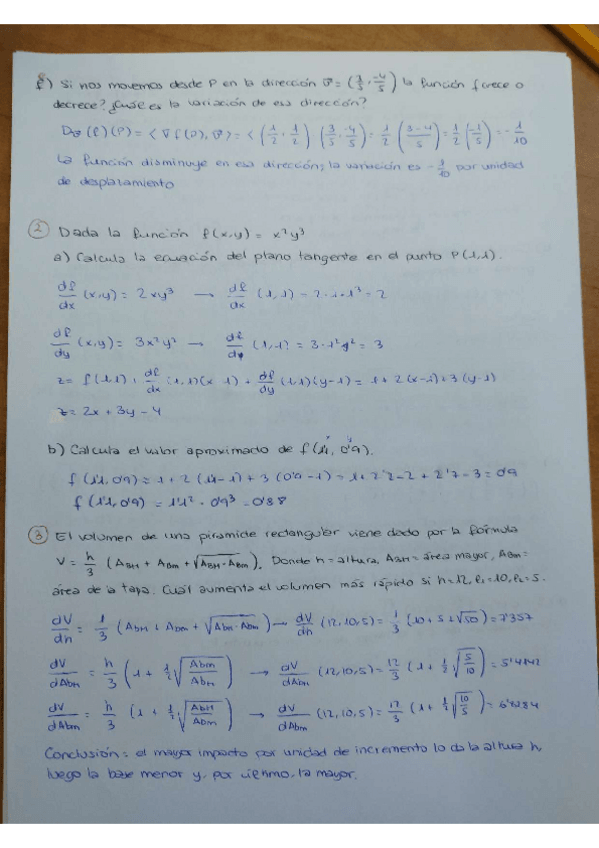 f) Si nos movemos desde P en la dirección v⃗ = (3/5, -4/5) la función crece o
decrece? ¿Cuál es la variación de esa dirección?
D_v⃗ (f)(P) = < ∇f(P), v⃗ > = < (1/2, 1/2) (3/5, -4/5) = 1/2 (3-4/5) = 1/2 (-1/5) = -1/10
La función disminuye en esa dirección; la variación es -1/10 por unidad
de desplazamiento
② Dada la función f(x,y) = x²y³
a) Calcula la ecuación del plano tangente en el punto P(1,1).
df/dx (x,y) = 2xy³ → df/dx (1,1) = 2·1·1³ = 2
df/dy (x,y) = 3x²y² → df/dy (1,1) = 3·1²·1² = 3
z = f(1,1) + df/dx (1,1)(x-1) + df/dy (1,1)(y-1) = 1 + 2(x-1) + 3(y-1)
z = 2x + 3y - 4
b) Calcula el valor aproximado de f(1'1, 0'9).
f(1'1, 0'9) ≈ 1 + 2(1'1-1) + 3(0'9-1) = 1 + 2'2 - 2 + 2'7 - 3 = 0'9
f(1'1, 0'9) = 1'1² · 0'9³ = 0'88
③ El volumen de una piramide rectangular viene dado por la fórmula
V = h/3 (A_BM + A_Bm + √(A_BM·A_Bm)). Donde h = altura, A_BM = área mayor, A_Bm =
área de la tapa. Cuál aumenta el volumen más rápido si h=12,
dV/dh = 1/3 (A_BM + A_Bm + √(A_BM·A_Bm)) → dV/dh (12,10,5) = 1/3 (10+5+√50) = 7'357
dV/dA_BM = h/3 (1 + 1/2 √(A_Bm/A_BM)) → dV/dA_BM (12,10,5) = 12/3 (1 + 1/2 √(5/10)) = 5'4142
dV/dA_Bm = h/3 (1 + 1/2 √(A_BM/A_Bm)) → dV/dA_Bm (12,10,5) = 12/3 (1 + 1/2 √(10/5)) = 6'8284
Conclusión: el mayor impacto por unidad de incremento lo da la altura h,
luego la base menor y, por último, la mayor.